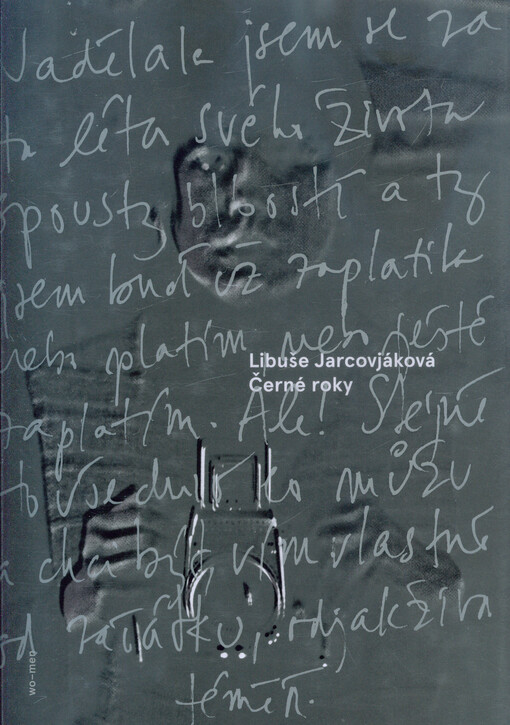 Nadělala jsem se za
ta léta svého života
spousty blbostí a ty
jsem buď už zaplatila
nebo platím nebo ještě
Libuše Jarcovjáková
Černé roky
zaplatím. Ale! Stejně
to všechno co můžu
a chci být, vím vlastně
od začátku, odjakživa
téměř.
wo–men